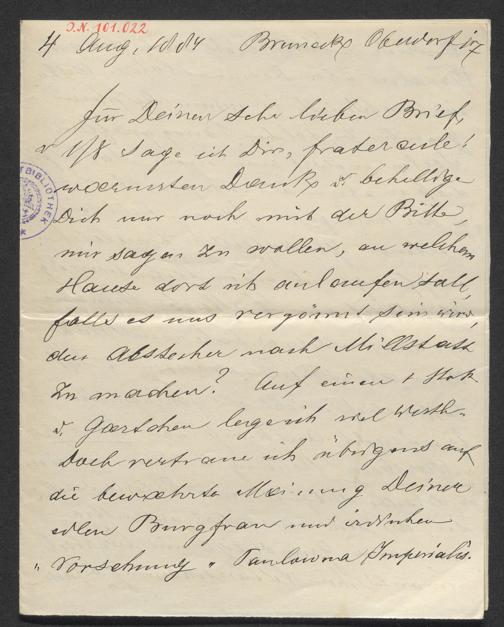 J.N. 101.022
4 Aug. 1884 Bruneck Oberdorf
Für Deinen sehr lieben Brief
v 1/8 sage ich Dir, fratercule!
wærmsten Dank u. behellige
Dich nur noch mit der Bitte,
mir sagen zu wollen, an welchem
Hause dort ich anlaufen soll,
falls es uns vergönnt sein wird,
den Abstecher nach Millstatt
zu machen? Auf einen
u. Gærtchen lege ich viel Werth.
Doch vertraue ich übrigens auf
die bewæhrte Meinung Deiner
edlen Burgfrau und irdischen
"Vorsehung" Paulowna Imperialis.
BIBLIOTHEK